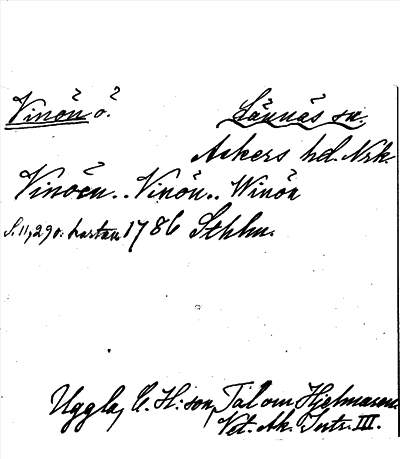 Vinön ö. Lännäs sn.
Askers hd. Nrk.
Vinöen.. Vinön.. Winön
S. 11, 290: kartan 1786 Sthlm.
Uggla, C. H:son, Tal om Hjelmaren.
Vet. Ak. Intr. III.